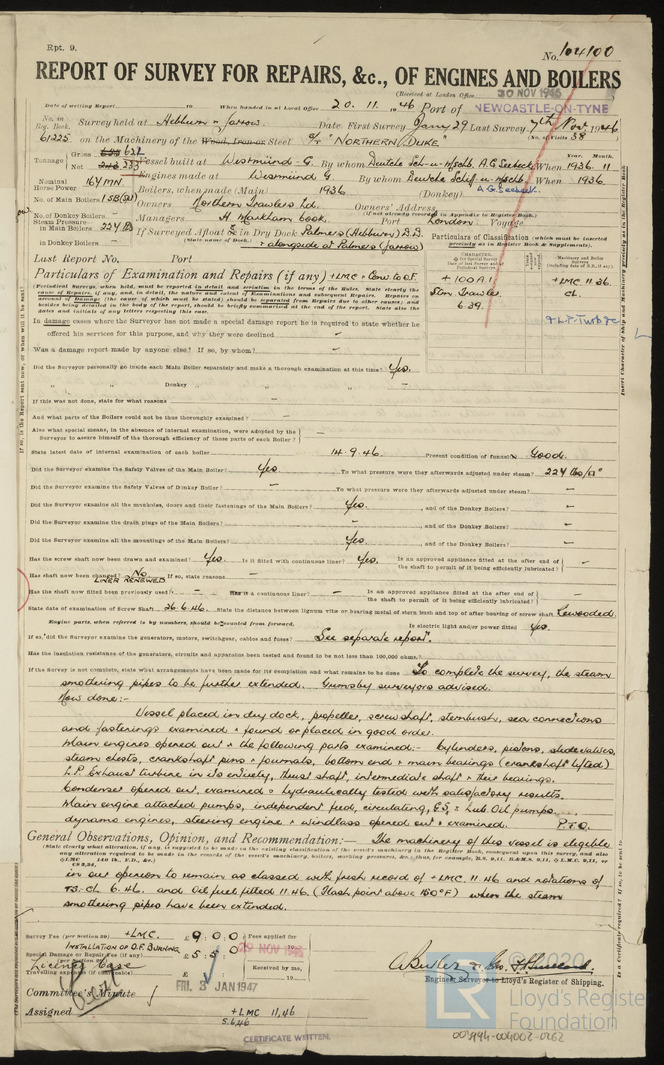 Rpt. 9.
No. 104100
REPORT OF SURVEY FOR REPAIRS, &c., OF ENGINES AND BOILERS
(Received at London Office 30 NOV 1946
Date of writing Report 19 When handed in at Local Office 20.11.1946 Port of NEWCASTLE-ON-TYNE
No. in Reg. Book. Survey held at Hebburn & Jarrow Date. First Survey Jany 29 Last Survey 7th Nov. 1946
61225 on the Machinery of the Wood, Iron or Steel S/Tr "NORTHERN DUKE" (No. of Visits 38
Tonnage Gross 655 628 Net 243 233 Vessel built at Wesermünde-G. By whom Deutsche Sch- u- Mschb. A.G. Seebeck When 1936. 11
Year. Month.
Nominal Horse Power 164 MN Engines made at Wesermünde G. By whom Deutsche Schif- u- Mschb. A.G. Seebeck. When 1936.
Boilers, when made (Main) 1936 (Donkey)
No. of Main Boilers 1SB(Spt) Owners Northern Trawlers Ltd. Owners' Address
(if not already recorded in Appendix to Register Book.)
No. of Donkey Boilers – Managers H. Markham Cook. Port London Voyage
Steam Pressure in Main Boilers 224 lbs If Surveyed Afloat or in Dry Dock Palmers (Hebburn) D.D.
(State name of Dock.) & alongside at Palmers (Jarrow)
in Donkey Boilers –
Particulars of Classification (which must be inserted precisely as in Register Book & Supplements).
Last Report No. Port
Particulars of Examination and Repairs (if any) +LMC & Conv to O.F.
+ 100A1
Stm Trawler
6.39
+LMC 11.36.
CL.
+L.P. Turb
(Periodical Surveys, when held, must be reported in detail and seriatim in the terms of the Rules. State clearly the cause of Repairs, if any, and, in detail, the nature and extent of Examinations and subsequent Repairs. Repairs on account of Damage (the cause of which must be stated) should be separated from Repairs due to other causes; and besides being detailed in the body of the report, should be briefly summarised at the end of the report. State also the dates and initials of any letters respecting this case.)
In damage cases where the Surveyor has not made a special damage report he is required to state whether he
offered his services for this purpose, and why they were declined –
Was a damage report made by anyone else? If so, by whom? –
Did the Surveyor personally go inside each Main Boiler separately and make a thorough examination at this time? Yes.
„ „ Donkey „ „ „ –
If this was not done, state for what reasons –
And what parts of the Boilers could not be thoroughly examined? –
Also what special means, in the absence of internal examination, were adopted by the
Surveyor to assure himself of the thorough efficiency of those parts of each Boiler? –
State latest date of internal examination of each boiler 14.9.46. Present condition of funnel Good.
Did the Surveyor examine the Safety Valves of the Main Boiler? Yes To what pressure were they afterwards adjusted under steam? 224 lbs/□"
Did the Surveyor examine the Safety Valves of Donkey Boiler? – To what pressure were they afterwards adjusted under steam? –
Did the Surveyor examine all the manholes, doors and their fastenings of the Main Boilers? Yes. , and of the Donkey Boilers? –
Did the Surveyor examine the drain plugs of the Main Boilers? – , and of the Donkey Boilers? –
Did the Surveyor examine all the mountings of the Main Boilers? Yes. , and of the Donkey Boilers? –
Has the screw shaft now been drawn and examined? Yes. Is it fitted with continuous liner? Yes. Is an approved appliance fitted at the after end of the shaft to permit of it being efficiently lubricated? –
Has shaft now been changed? No LINER RENEWED If so, state reasons –
Has the shaft now fitted been previously used? – Has it a continuous liner? – Is an approved appliance fitted at the after end of the shaft to permit of it being efficiently lubricated? –
State date of examination of Screw Shaft 26.6.46. State the distance between lignum vitæ or bearing metal of stern bush and top of after bearing of screw shaft Rewooded.
Engine parts, when referred to by numbers, should be counted from forward. Is electric light and/or power fitted Yes.
If so, did the Surveyor examine the generators, motors, switchgear, cables and fuses? See separate report.
Has the insulation resistance of the generators, circuits and apparatus been tested and found to be not less than 100,000 ohms?
If the Survey is not complete, state what arrangements have been made for its completion and what remains to be done To complete the survey, the steam
smothering pipes to be further extended. Grimsby surveyors advised.
Now done:-
Vessel placed in dry dock, propeller, screwshaft, sternbush, sea connections
and fastenings examined & found or placed in good order.
Main engines opened out & the following parts examined:- Cylinders, pistons, slide valves,
steam chests, crankshaft pins & journals, bottom end & main bearings (crankshaft lifted)
L.P. Exhaust turbine in its entirety, thrust shaft, intermediate shaft & their bearings.
Condenser opened out, examined & hydraulically tested with satisfactory results.
Main engine attached pumps, independent feed, circulating, G.S. & Lub. Oil pumps
dynamo engines, steering engine & windlass opened out & examined. P.T.O.
General Observations, Opinion, and Recommendation:— The machinery of this vessel is eligible
in our opinion to remain as classed with fresh record of +LMC 11.46 and notations of
TS. CL 6.46. and Oil fuel fitted 11.46 (Flash point above 150°F) when the steam
smothering pipes have been extended.
Survey Fee (per section 29) +LMC £ 9 : 0 : 0 Fees applied for
INSTALLATION OF O.F. BURNING
Special Damage or Repair Fee (if any) £ 5 : 5 : 0 29 NOV 1946
Travelling expenses (if chargeable) £ Received by me,
FRI. 3 JAN 1947
Engineer Surveyor to Lloyd's Register of Shipping.
Committee's Minute
Assigned +LMC 11.46
S.6.46
CERTIFICATE WRITTEN.
© 2020
LR
Lloyd's Register
Foundation
003994-004002-0262